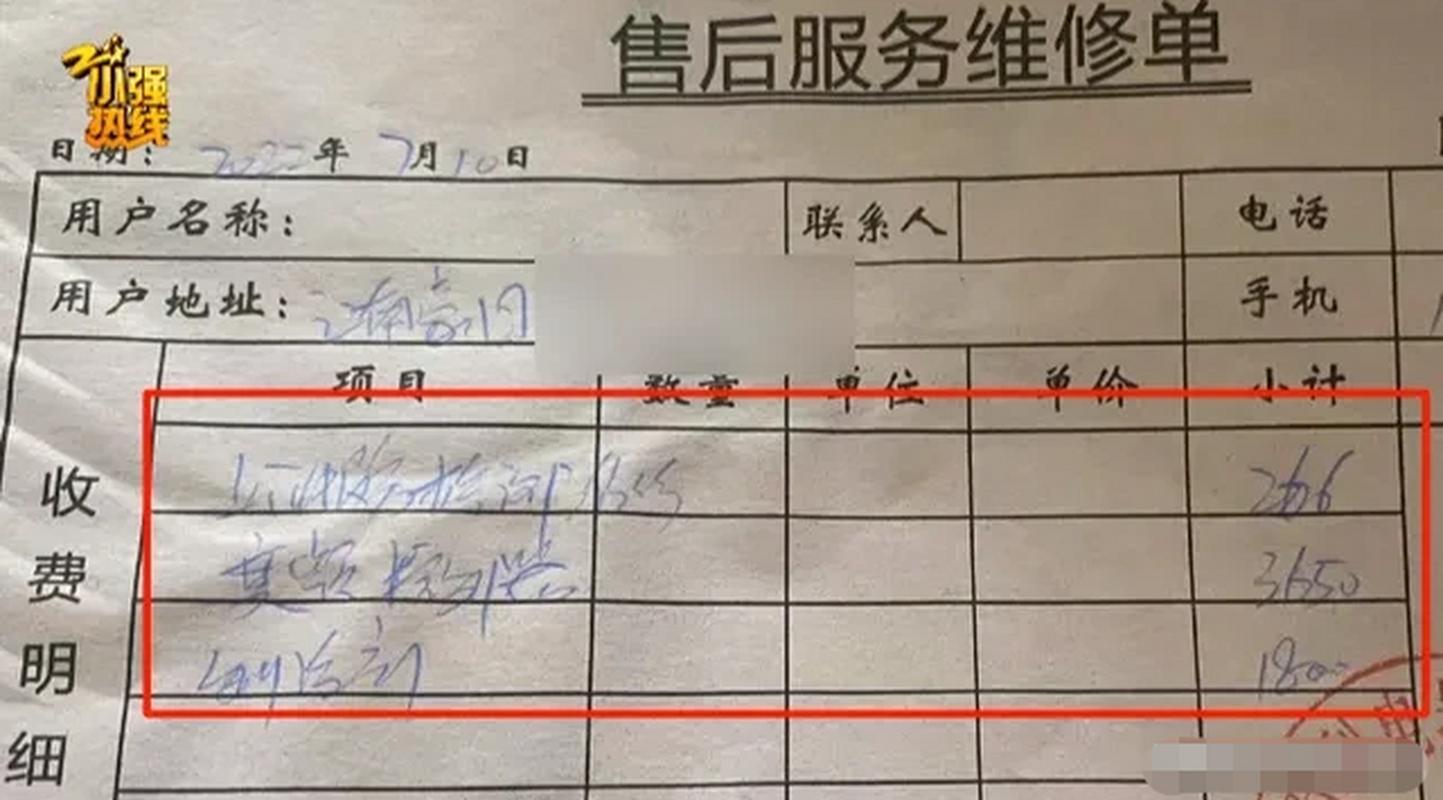 售后服务维修单
小强热线
日期: 2022年 7月10日
用户名称: 联系人 电话
用户地址: 江南豪门 手机
项目 数量 单位 单价 小计
收费明细
266
变频 3650
制冷剂 1800